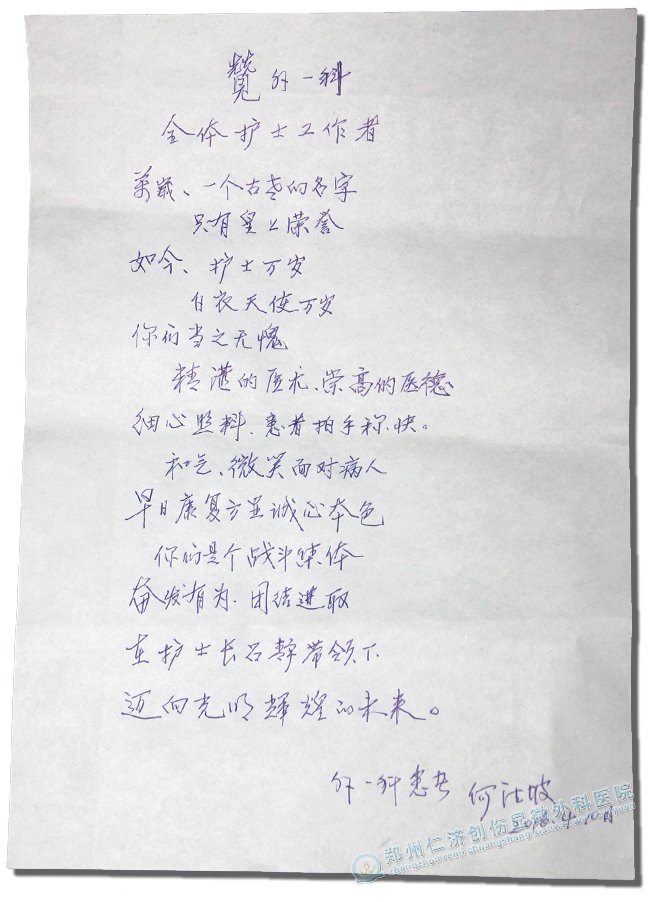 赞外一科
全体护士工作者
万岁、一个古老的名字
只有皇上荣誉
如今、护士万岁
白衣天使万岁
你们当之无愧
精湛的医术、崇高的医德
细心照料、患者拍手称快。
和气、微笑面对病人
早日康复方显诚心本色
你们是个战斗集体
奋发有为、团结进取
在护士长石静带领下
迈向光明辉煌的未来。
外一科患者 何
郑州仁济创伤显微外科医院